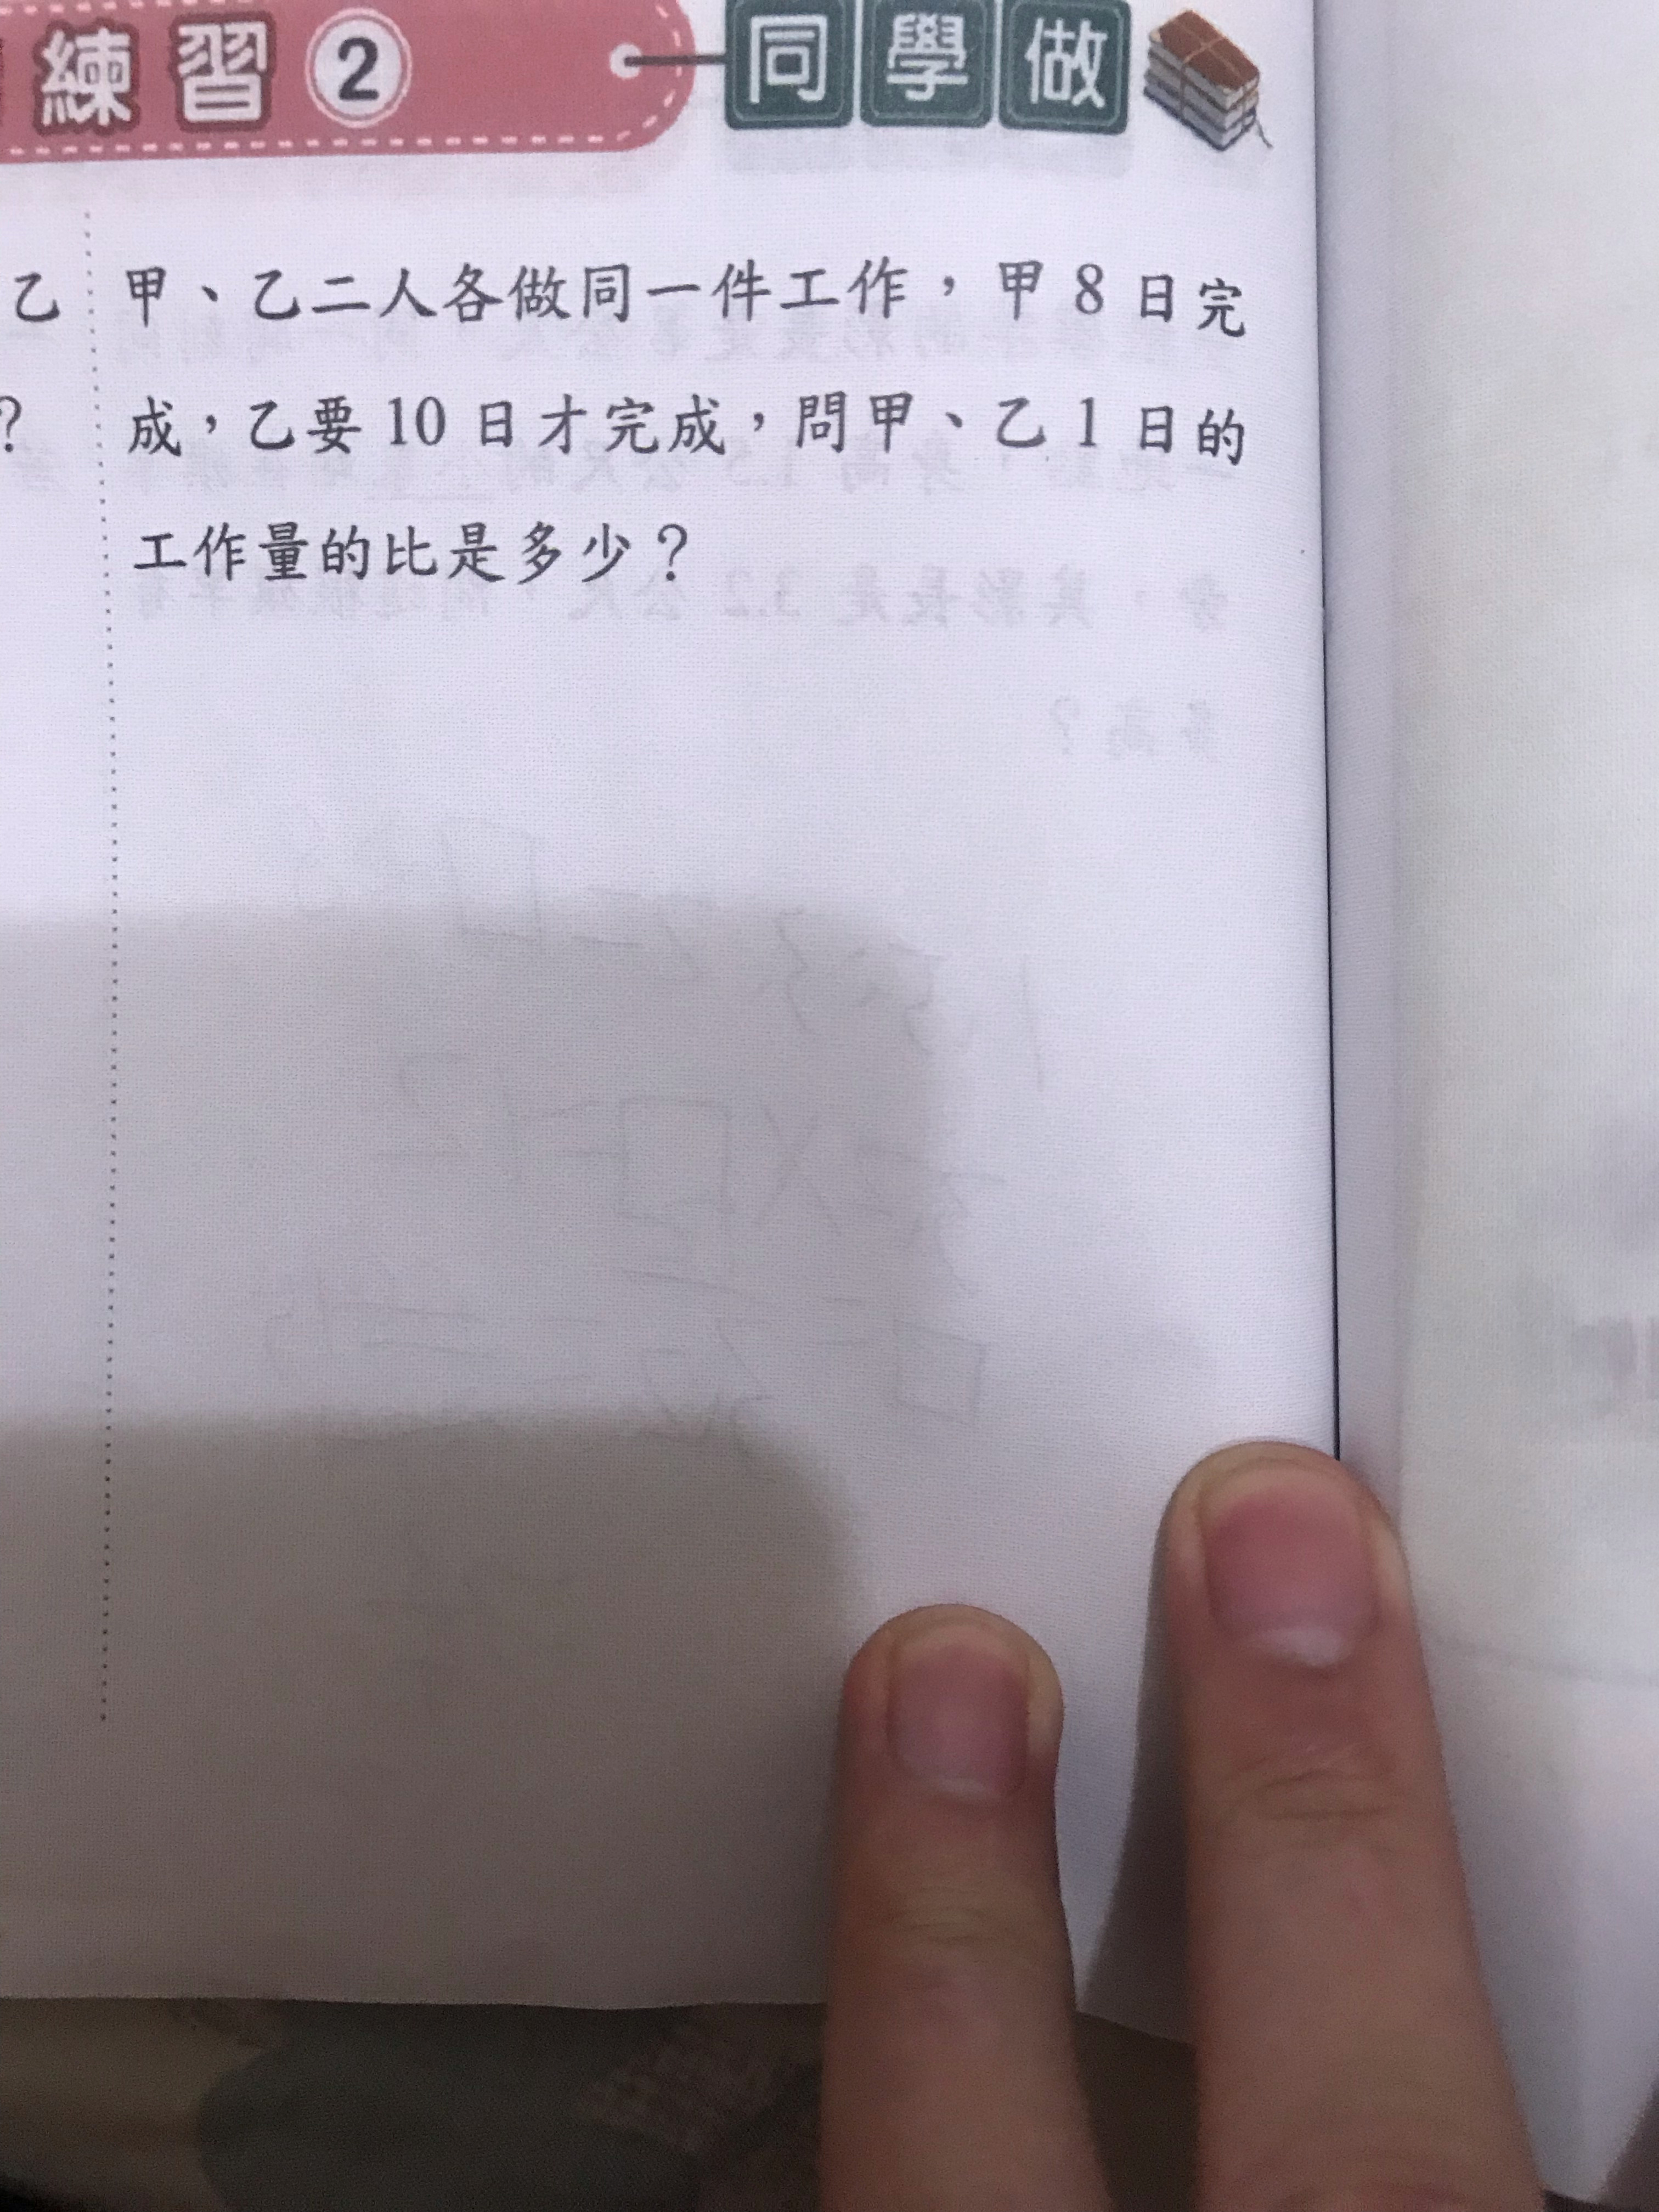 練習② 同學做
乙
甲、乙二人各做同一件工作，甲8日完
?
成，乙要10日才完成，問甲、乙1日的
工作量的比是多少？